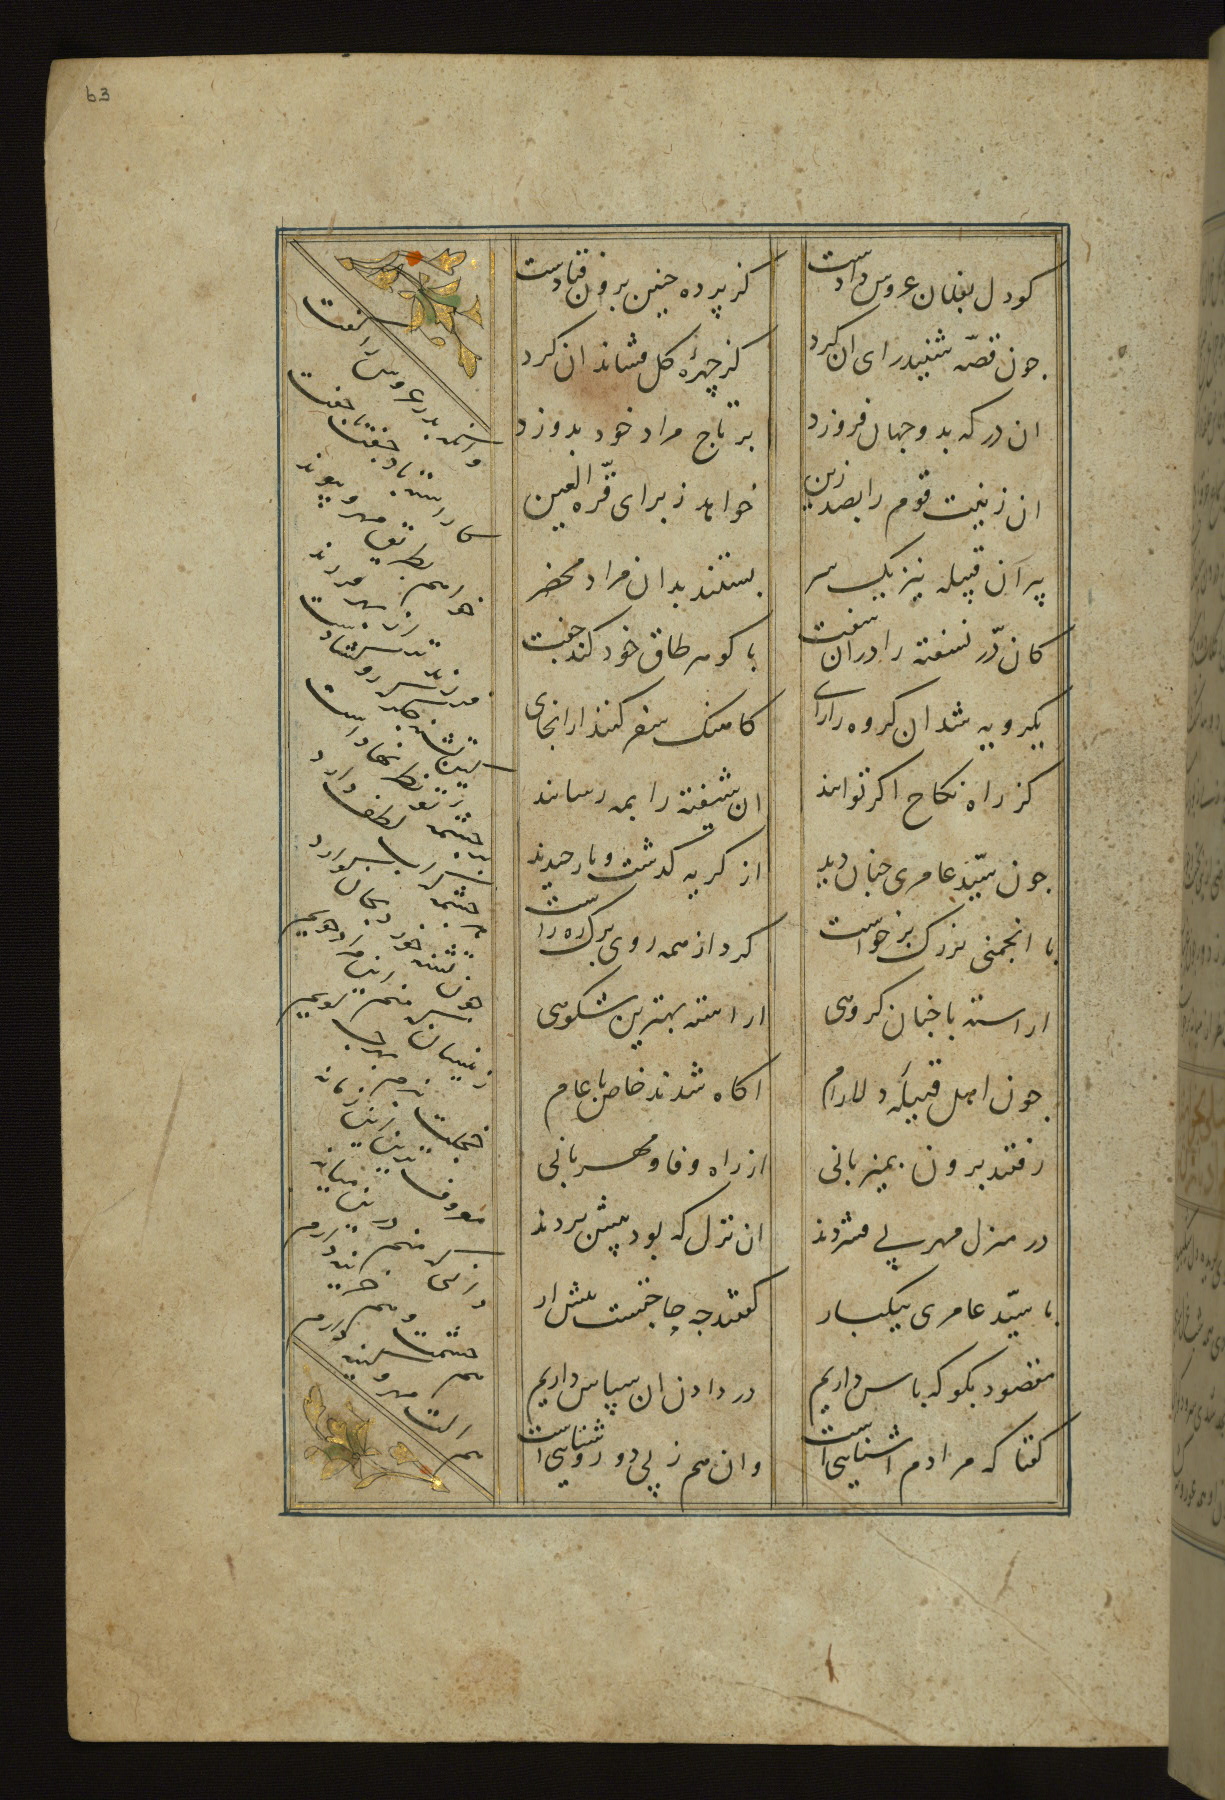 63
کو دل بفلان عروس دادست کز پرده چنین برون فتادست
چون قصّه شنید رای ان کرد کز چهرهٔ کل فشاند ان کرد
ان در که بدو جهان فروزد بر تاج مراد خود بدوزد
ان زینت قوم را بصد زین خواهد ز برای قرّه العین
پیران قبیله نیز یک سر بستند بدان مراد محضر
کان درّ نسفته را دران سفت با کوهر طاق خود کند جفت
یکرویه شد ان کروه را رای کاهنک سفر کنند ازانجای
کز راه نکاح اکر توانند ان شیفته را بمه رسانند
چون سیّد عامری چنان دید از کریه کذشت و باز خندید
با انجمنی بزرک برخواست کرد از همه روی برک ره راست
اراسته با چنان کروهی اراسته بهترین شکوهی
چون اهل قبیله دلارام اکاه شدند خاص با عام
رفتند برون بمیزبانی از راه وفا و مهربانی
در منزل مهر پی فشردند ان نزل که بود پیش بردند
با سیّد عامری بیکبار کفتند چه حاجتست پیش ار
مقصود بکو که پاس داریم در دادن ان سپاس داریم
کفتا که مرادم اشناییست وان هم ز پی دو روشناییست
وانکه بپدر عروس را کفت
کاراسته باد جفت با جفت
خواهم بطریق مهر و پیوند
فرزند ترا ز بهر فرزند
کین تشنه جکر
بر چشمه تو نظر نهادست
هر چشمه که اب لطف دارد
چون تشنه خورد بجان کوارد
زینسان که من این مراد جویم
خجلت نبرم بدانچه کویم
معروف‌ترین این زمانه
دانی که منم درین میانه
هم حشمت و هم خزینه دارم
هم الت مهر و کینه دارم